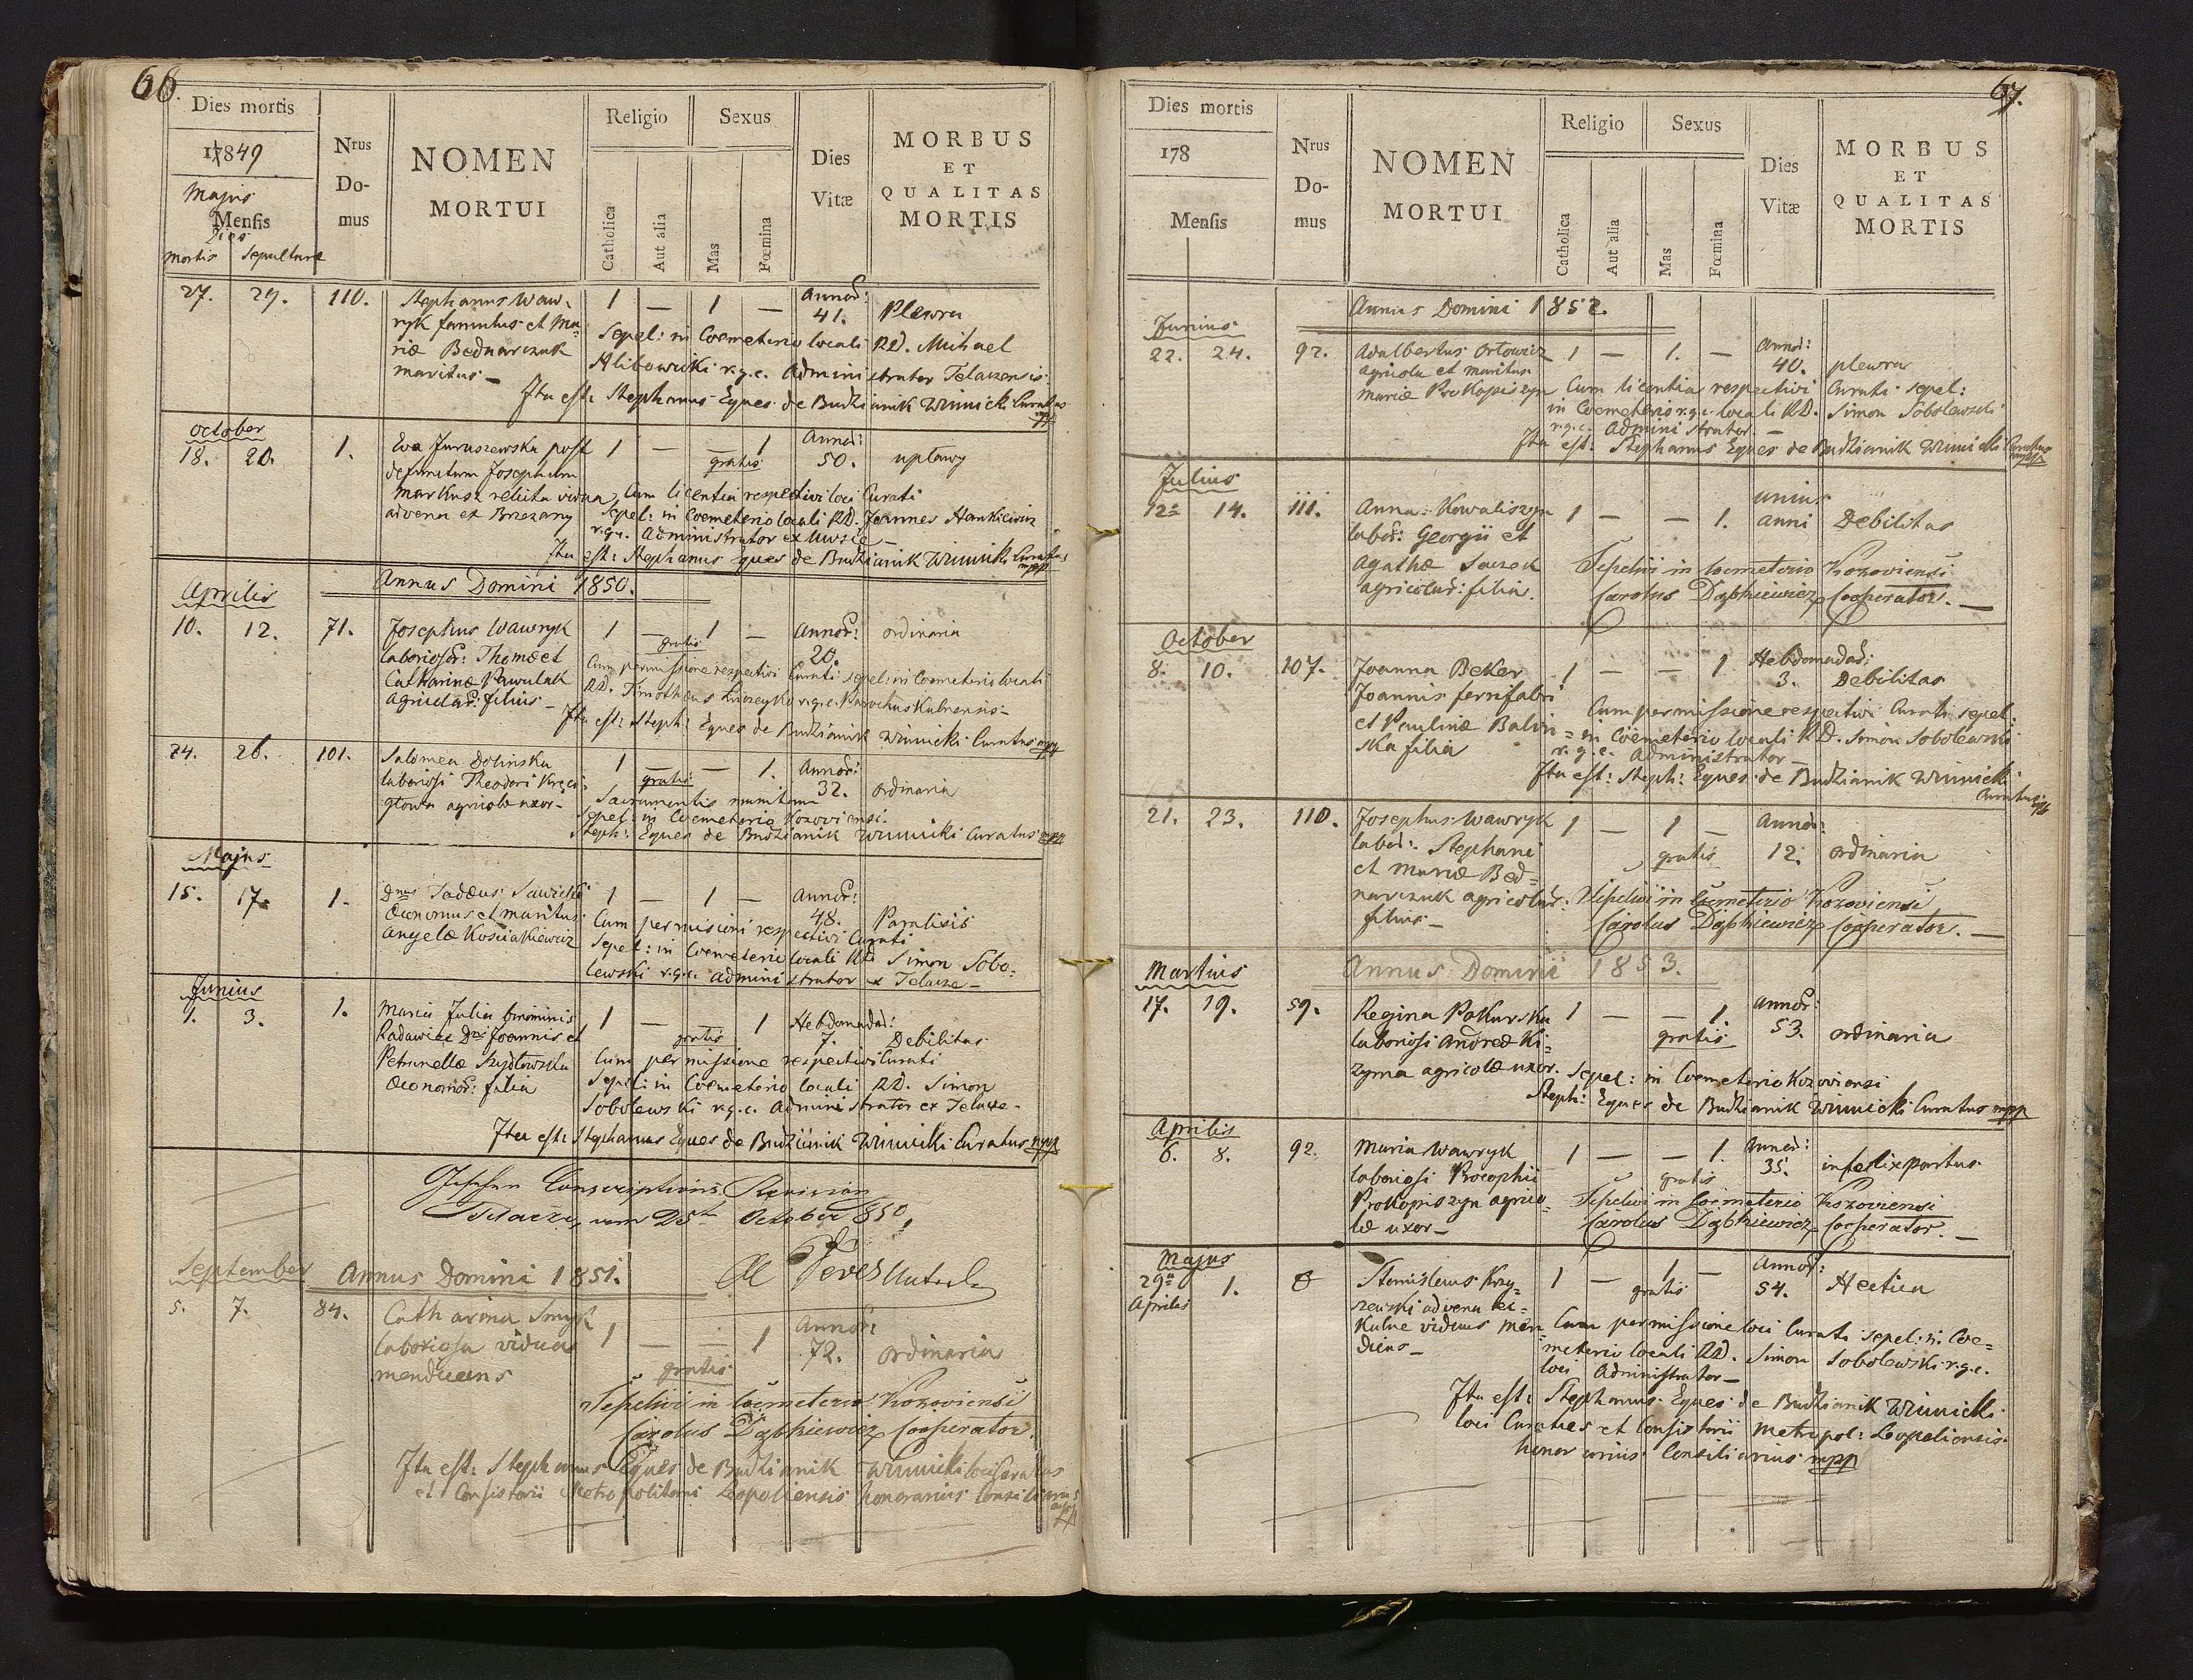 66.
Dies mortis
17849
Majus
Mensis
Dies
mortis sepulturæ
Nrus
Do-
mus
NOMEN
MORTUI
Religio
Catholica
Aut alia
Sexus
Mas
Fœmina
Dies
Vitæ
MORBUS
ET
QUALITAS
MORTIS
27. 29. 110. Stephanus Waw- 1 — 1 — Annor: 41. Plewra
ryk famulus et Ma-
riæ Bednarczuk
maritus —
Sepel: in Coemeterio locali RD. Michael
Hlibowicki r.g.c. Administrator Telacensis
Ita est: Stephanus Eques de Budzianik Winnicki Curatus mpp
October
18. 20. 1. Eva Juruszewska post 1 — — 1 Annor: 50. upławy
gratis
defunctum Josephum
Markusz relicta vidua
advena ex Brzezany
Cum licentia respectivi loci Curati
Sepel: in Coemeterio locali RD. Joannes Hankiewicz
r.g.c. Administrator ex Uwsie —
Ita est: Stephanus Eques de Budzianik Winnicki Curatus mpp
Annus Domini 1850.
Aprilis
10. 12. 71. Josephus Wawryk 1 — 1 — Annor: 20. ordinaria
gratis
laboriosor: Thomæ et
Catharinæ Pawulak
agricolar: filius —
Cum permissione respectivi Curati sepel: in Coemeterio locali
RD. Timotheus r.g.c. Parochus Kulnensis —
Ita est: Steph: Eques de Budzianik Winnicki Curatus mpp
24. 26. 101. Salomea Dolinska 1 — — 1. Annor: 32. ordinaria
gratis
laboriosi Theodori Kręci-
głowa agricolæ uxor —
Sacramentis munitam
sepel: in Coemeterio Kozoviensi
Steph: Eques de Budzianik Winnicki Curatus mpp
Majus
15. 17. 1. Dnus Tadæus Sawicki 1 — 1 — Annor: 48. Paralisis
Œconomus et maritus
Angelæ Kosciakiewicz
Cum permissioni respectivi Curati
Sepel: in Coemeterio locali RD. Simon Sobo-
lewski r.g.c. Administrator ex Telacze —
Junius
1. 3. 1. Maria Julia binominis 1 — 1 Hebdomadar: 7. Debilitas
gratis
Radawiec Dni Joannis et
Petrunellæ Szydłowska
Œconomor: filia
Cum permissione respectivi Curati
Sepel: in Coemeterio locali RD. Simon
Sobolewski r.g.c. Administrator ex Telacze —
Ita est: Stephanus Eques de Budzianik Winnicki Curatus mpp
Gesehen Conscriptions Revision
Telacze, am 25t October 850
September
Annus Domini 1851.
5. 7. 84. Catharina Smyk 1 — — 1 Annor: 72. ordinaria
gratis
laboriosa vidua
mendicans
Sepelivi in Coemeterio Kozoviensi
Carolus Dąbkiewicz Cooperator.
Ita est: Stephanus Eques de Budzianik Winnicki loci Curatus
et Consistorii Metropolitani Leopoliensis honorarius Consiliarius mpp
67.
Dies mortis
178
Mensis
Nrus
Do-
mus
NOMEN
MORTUI
Religio
Catholica
Aut alia
Sexus
Mas
Fœmina
Dies
Vitæ
MORBUS
ET
QUALITAS
MORTIS
Annus Domini 1852.
Junius
22. 24. 92. Adalbertus Ortowicz 1 — 1. — Annor: 40. plewra
agricola et maritus
mariæ Prokopiszyn
Cum licentia respectivi Curati sepel:
in Coemeterio r.g.c. locali RD. Simon Sobolewski
r.g.c. Administrator. —
Ita est: Stephanus Eques de Budzianik Winnicki Curatus mpp
Julius
12. 14. 111. Anna Kowaliszyn 1 — — 1. unius anni Debilitas
labor: Georgii et
Agathæ Saczek
agricolar: filia.
Sepelivi in Coemeterio Kozoviensi
Carolus Dąbkiewicz Cooperator. —
October
8. 10. 107. Joanna Beker 1 — — 1 Hebdomadar: 3. Debilitas
Joannis ferrifabri
et Paulinæ Balin-
ska filia
Cum permissione respectivi Curati sepel:
in Coemeterio locali RD. Simon Sobolewski
r.g.c. Administrator —
Ita est: Steph: Eques de Budzianik Winnicki
Curatus mpp
21. 23. 110. Josephus Wawryk 1 — 1 — Annor: 12. ordinaria
gratis
labor: Stephani
et Mariæ Bed-
narczuk agricolar:
filius —
Sepelivi in Coemeterio Kozoviensi
Carolus Dąbkiewicz Cooperator. —
Annus Domini 1853.
Martius
17. 19. 59. Regina Pokurska 1 — — 1. Annor: 53. ordinaria
gratis
laboriosi Andreæ Ki-
zyma agricolæ uxor.
Sepel: in Coemeterio Kozoviensi
Steph: Eques de Budzianik Winnicki Curatus mpp
Aprilis
6. 8. 92. Maria Wawryk 1 — — 1. Annor: 35. infelix partus
gratis
laboriosi Procophii
Prokopiszyn agrico-
læ uxor —
Sepelivi in Coemeterio Kozoviensi
Carolus Dąbkiewicz Cooperator. —
Majus
29a Aprilis 1. Stanislaus Krzy- 1 — 1 — Annor: 54. Hectica
gratis
szewski advena ex
Kulne viduus men-
dicus —
Cum permissione loci Curati sepel: in Coe-
meterio locali RD. Simon Sobolewski r.g.c.
loci Administrator —
Ita est: Stephanus Eques de Budzianik Winnicki
loci Curatus et Consistorii Metropol: Leopoliensis
honorarius Consiliarius mpp